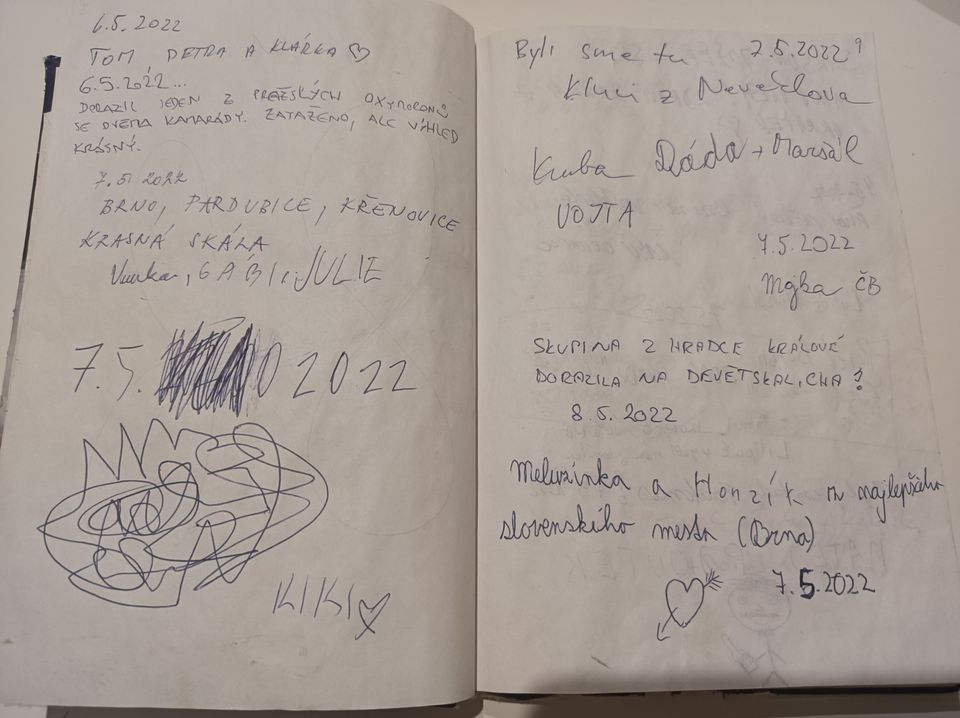 6.5.2022
TOM PETRA A KLÁRKA ♡
6.5.2022...
DORAZIL JEDEN Z PRAŽSKÝCH OXYMORONŮ
SE DVĚMA KAMARÁDY. ZATAŽENO, ALE VÝHLED
KRÁSNÝ.
7.5 2022
BRNO, PARDUBICE, KŘENOVICE
KRASNÁ SKÁLA
GÁBI, JULIE
7.5. 2022
KIKI ♡
Byli sme tu 7.5.2022
Kluci z Neveklova
Kuba Dáda + Maršál
VOJTA
7.5.2022
Majka ČB
SKUPINA Z HRADCE KRÁLOVÉ
DORAZILA NA DEVĚTSKAL, CHA!
8.5.2022
Meluzínka a Honzík z najlepšieho
slovenskího mesta (Brna)
7.5.2022